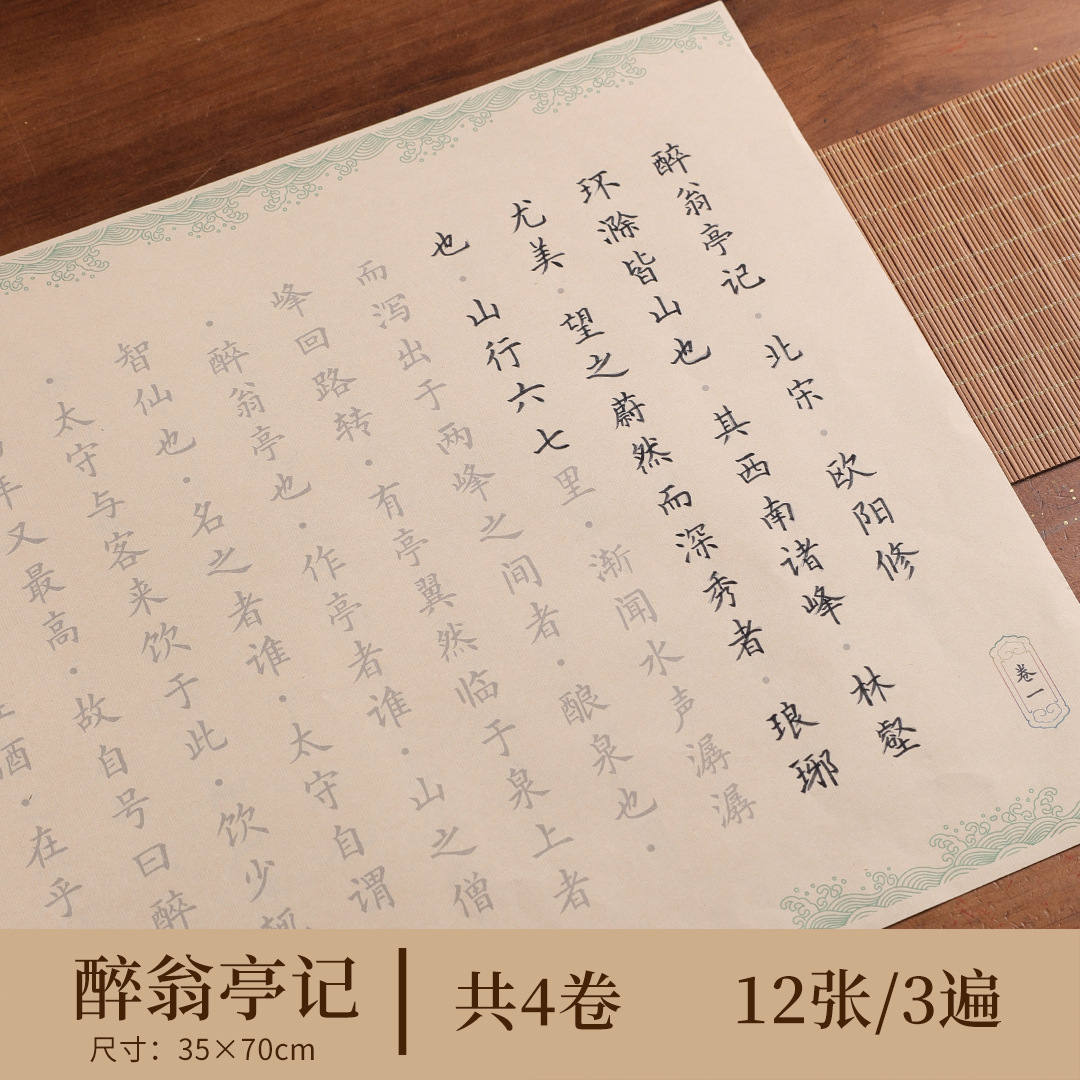 醉翁亭记·北宋·欧阳修
环滁皆山也·其西南诸峰·林壑
尤美·望之蔚然而深秀者·琅琊
也·山行六七里·渐闻水声潺潺
而泻出于两峰之间者·酿泉也·
峰回路转·有亭翼然临于泉上者
·醉翁亭也·作亭者谁·山之僧
智仙也·名之者谁·太守自谓
·太守与客来饮于此·饮少
年又最高·故自号曰醉
酒·在乎
卷一
醉翁亭记
尺寸：35×70cm
共4卷
12张/3遍